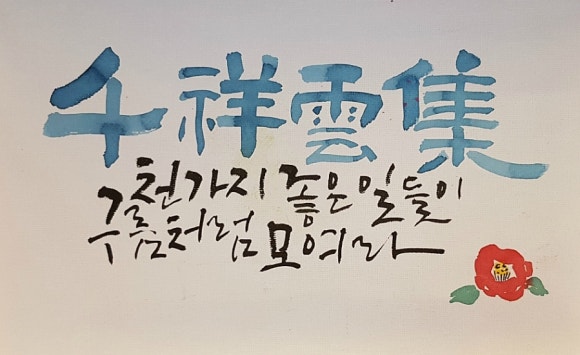 千祥雲集
천가지 좋은 일들이
구름처럼 모여라